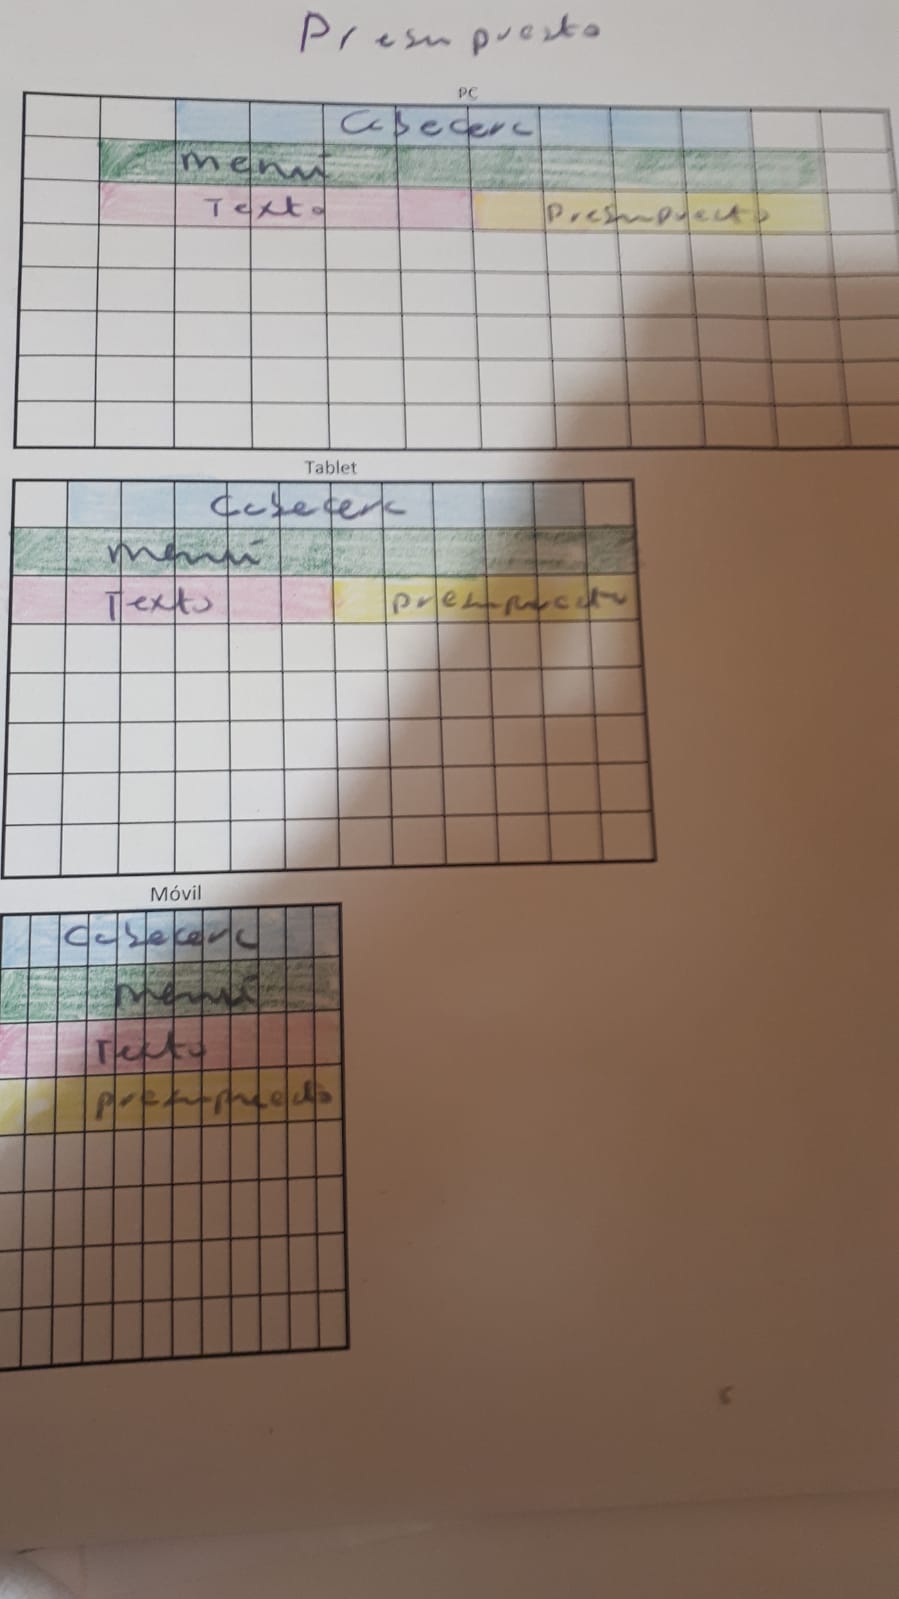 Presupuesto
PC
Cabecera
menú
Texto presupuesto
Tablet
Cabecera
menú
Texto presupuesto
Móvil
Cabecera
menú
Texto
presupuesto